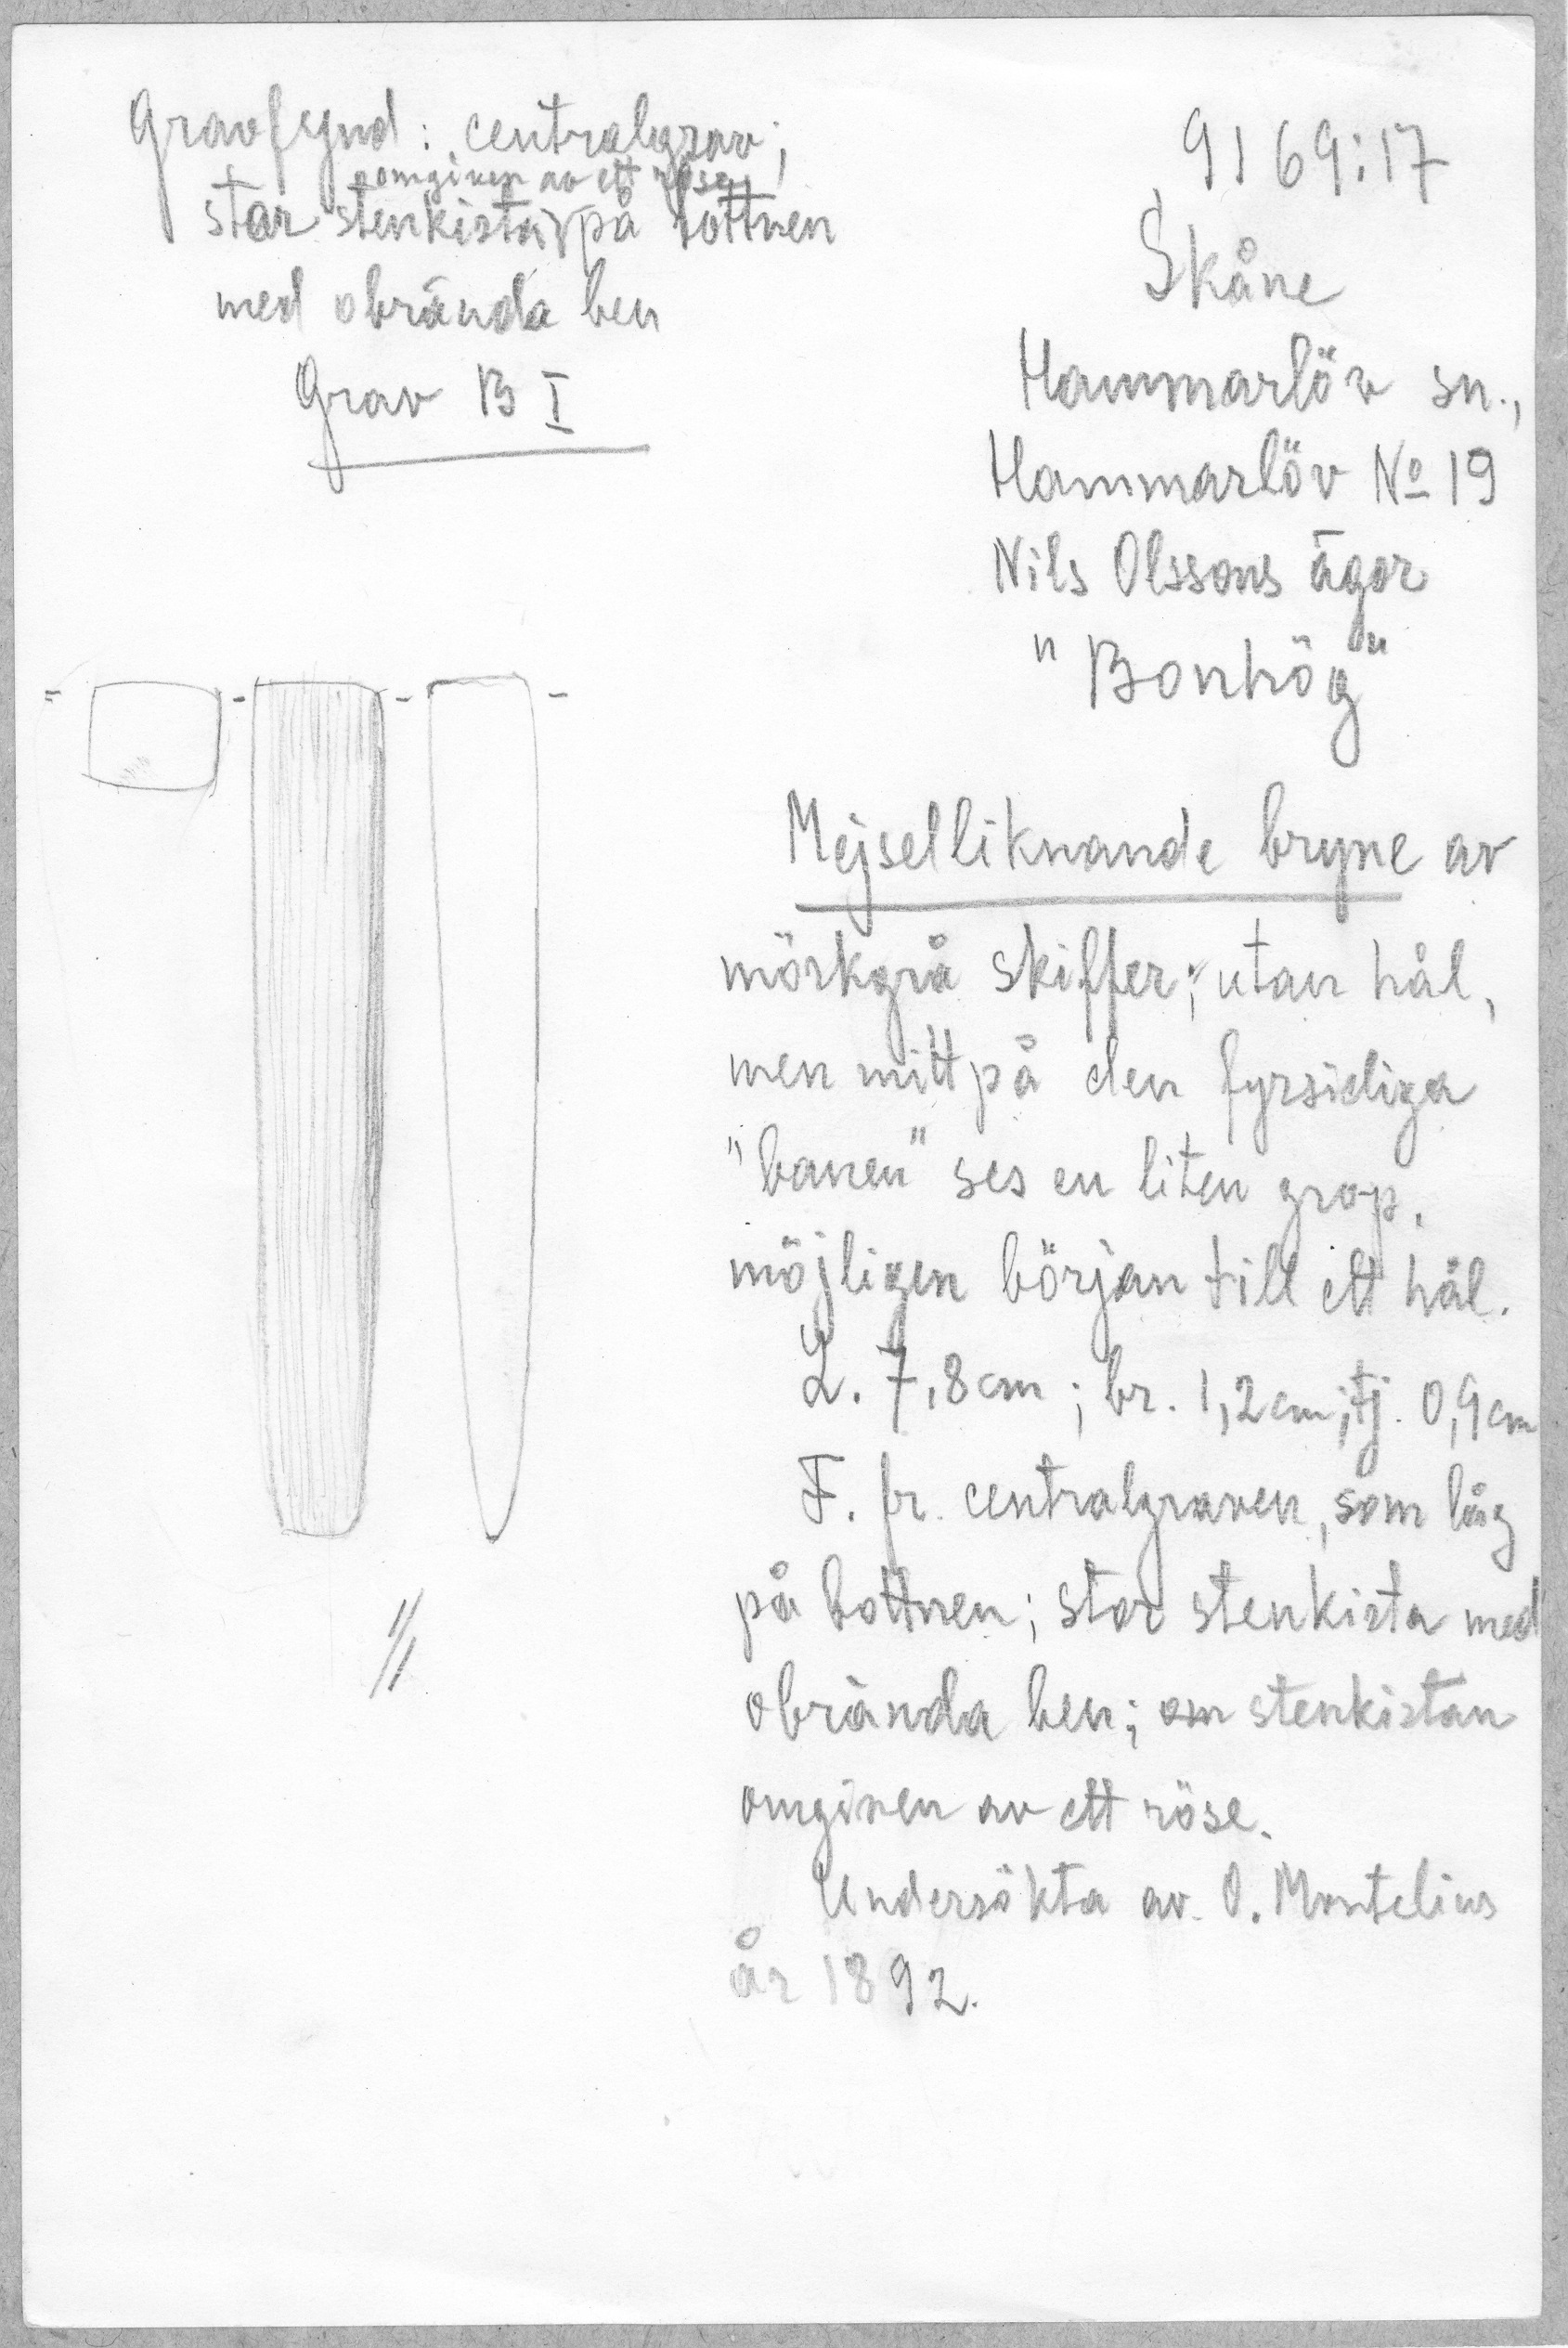 Gravfynd: centralgrav;
omgiven av ett röse,
stor stenkista på bottnen
med obrända ben
Grav B I
9169:17
Skåne
Hammarlöv sn.,
Hammarlöv No 19
Nils Olssons ägor
"Bonhög"
Mejselliknande bryne av
mörkgrå skiffer; utan hål,
men mitt på den fyrsidiga
"banen" ses en liten grop,
möjligen början till ett hål.
L. 7,8 cm; br. 1,2 cm; tj. 0,9 cm
F. fr. centralgraven, som låg
på bottnen; stor stenkista med
obrända ben; om stenkistan
omgiven av ett röse.
Undersökta av O. Montelius
år 1892.
1/1